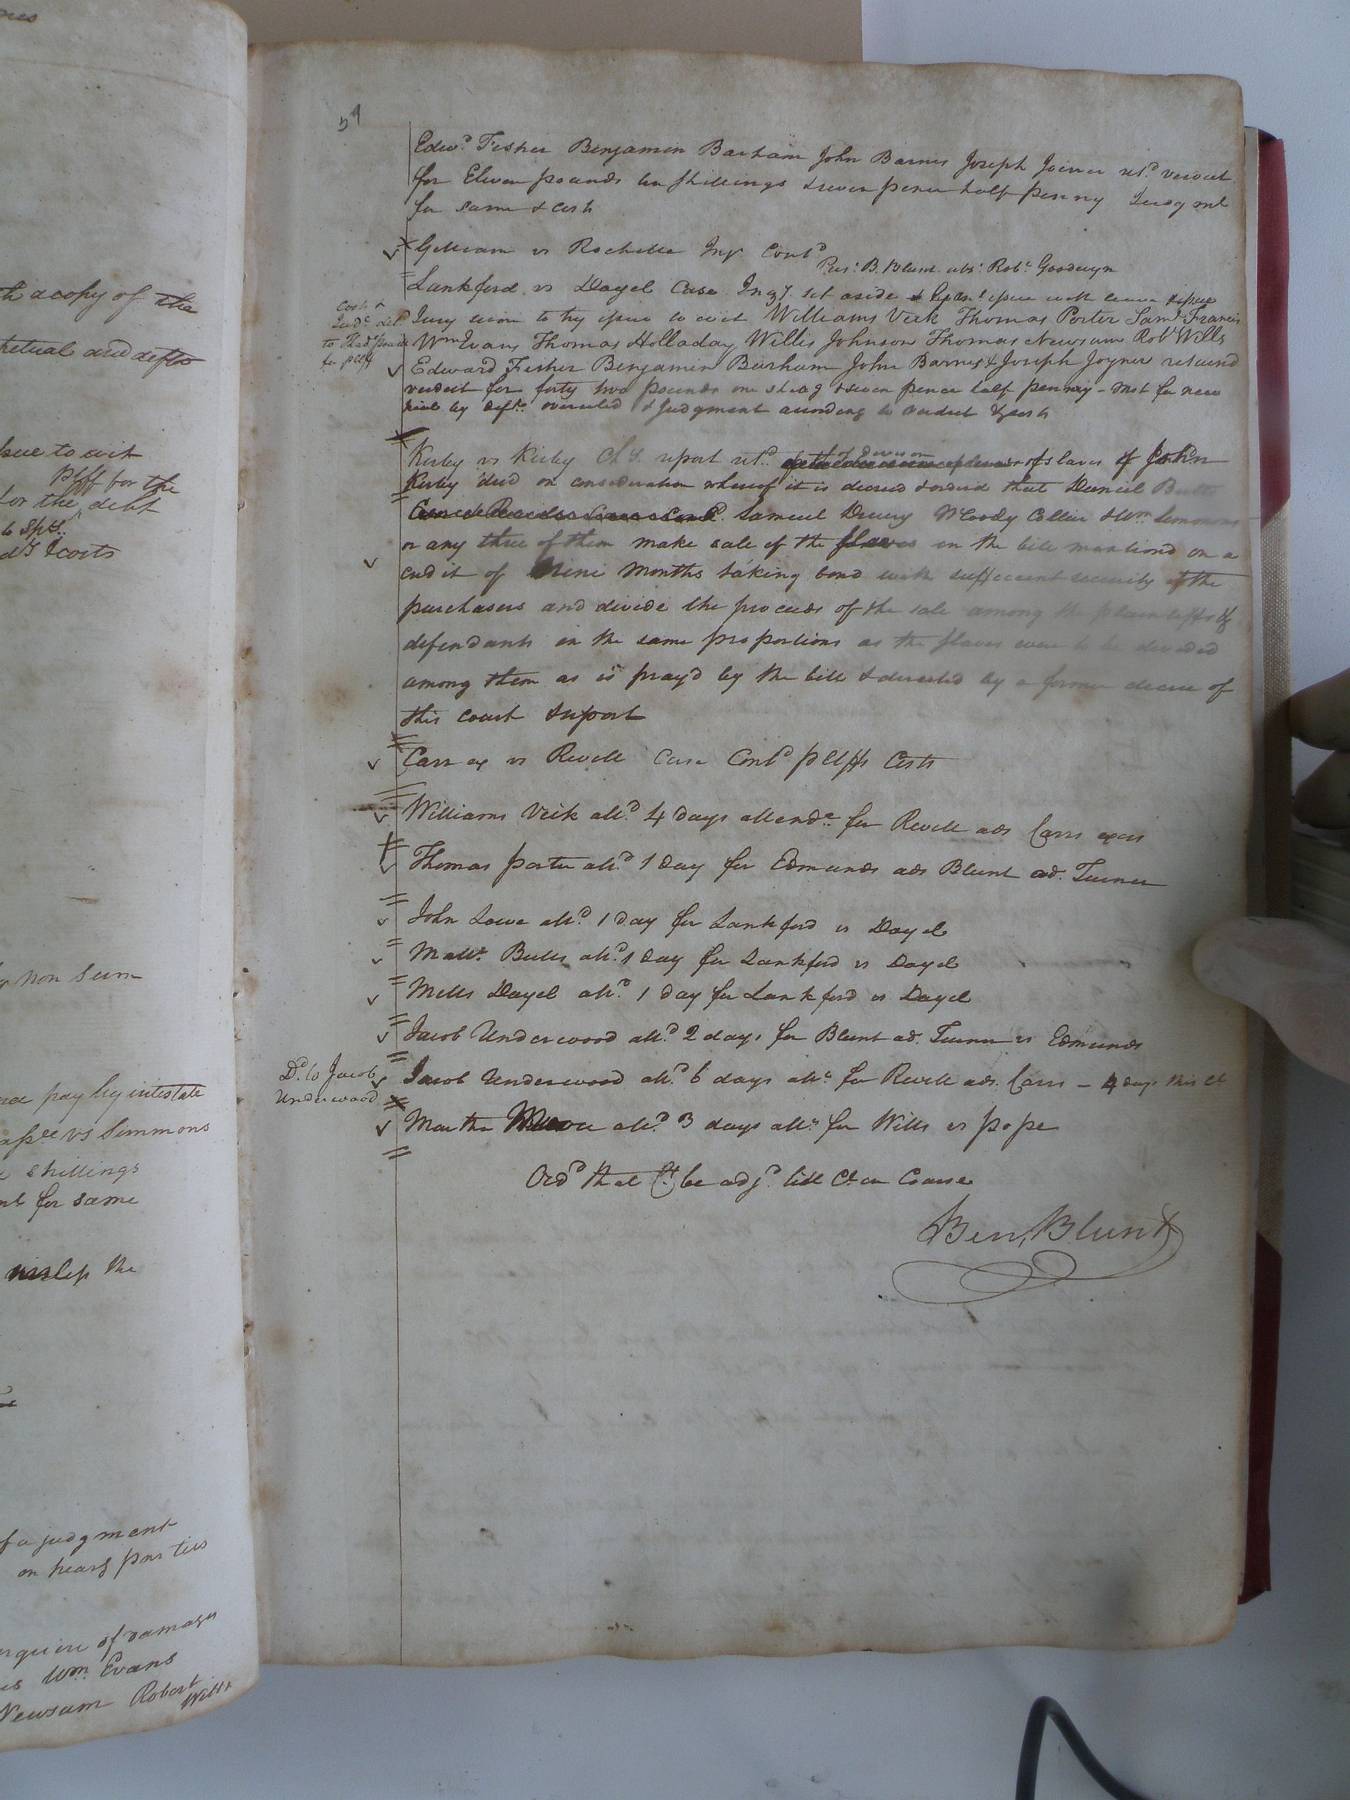 th a copy of the
sue to wit
Plff for the
for the debt
& costs
non sum
pay by intestate
vs Simmons
shillings
for same
the
of a judgment
on hearg parties
enquire of damages
Wm. Evans
Newsum Robert
Wills
Edwd. Fisher Benjamin Barham John Barnes Joseph Joiner retd. verdict
for Eleven pounds ten shillings & seven pence half penny Judgmt
for same & costs
Gilliam vs Rochelle Injn Contd
Pres: B. Blunt abs: Robt. Goodwyn
Lankford vs Dayel Case Inqy. set aside issue with leave
Jury sworn to try issue to wit Williams Vick Thomas Porter Saml. Francis
Wm Evans Thomas Holladay Willis Johnson Thomas Newsum Robt Wills
Edward Fisher Benjamin Barham John Barnes & Joseph Joyner returnd
verdict for forty two pounds one shilg & seven pence half penny - mot for new
trial by deft. overruled & Judgment according to verdict & costs
Kirby vs Kirby Ch. report retd. of slaves of John
Kirby decd on consideration whereof it is decreed & ordered that Daniel Butts
Samuel Drury McCody Collier & Wm Simmons
or any three of them make sale of the slaves in the bill mentiond on a
credit of Nine Months taking bond with sufficient security of the
purchasers and divide the proceeds of the sale among the plaintiffs &
defendants in the same proportions as the slaves were to be divided
among them as is pray'd by the bill & directed by a former decree of
this court & report
Carr ex vs Revell Case Contd p Plffs Costs
Williams Vick alld. 4 days attendce for Revell ads Carrs exors
Thomas Porter alld. 1 day for Edmunds ads Blunt ad. Turner
John Lowe alld. 1 day for Lankford vs Dayel
Mattw. Butts alld. 1 day for Lankford vs Dayel
Mills Dayel alld. 1 day for Lankford vs Dayel
Jacob Underwood alld. 2 days for Blunt ad. Turner vs Edmunds
Dd. to Jacob
Underwood
Jacob Underwood alld. 6 days atte. for Revell ads. Carrs - 4 days this Ct
Martha alld. 3 days atte. for Wills vs Pope
Ordd that Ct. be adjd. till Ct in Course
Ben, Blunt